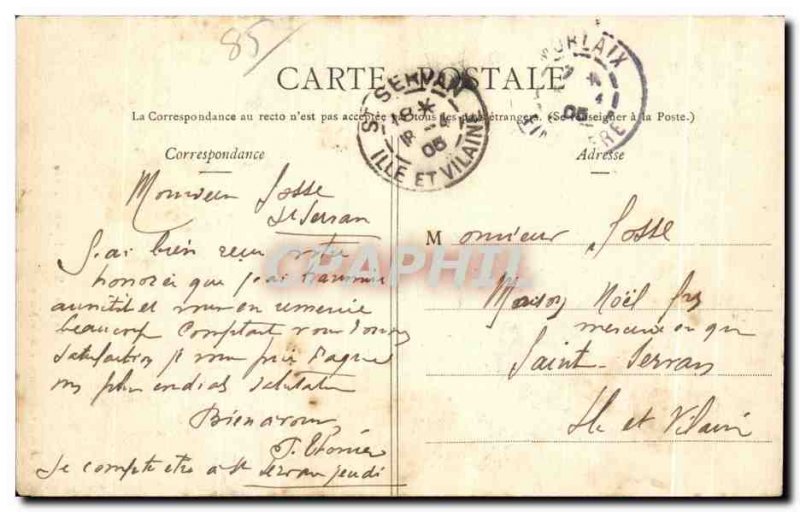 85
CARTE POSTALE
La Correspondance au recto n'est pas acceptée par tous les pays étrangers. (Se renseigner à la Poste.)
Correspondance
Adresse
ST SERVAN
18 - 4
05
ILLE ET VILAINE
MORLAIX
05
FINISTERE
Monsieur Josse
St Servan
J'ai bien reçu votre
honorée que j'ai transmise
aussitôt et vous en remercie
beaucoup Comptant vous donner
satisfaction je vous prie d'agréer
mes plus cordiales salutations
Bien à vous
Je compte être à St Servan jeudi
Monsieur Josse
Maison Noël frs
Saint-Servan
Ile et Vilaine
CPAPHIL